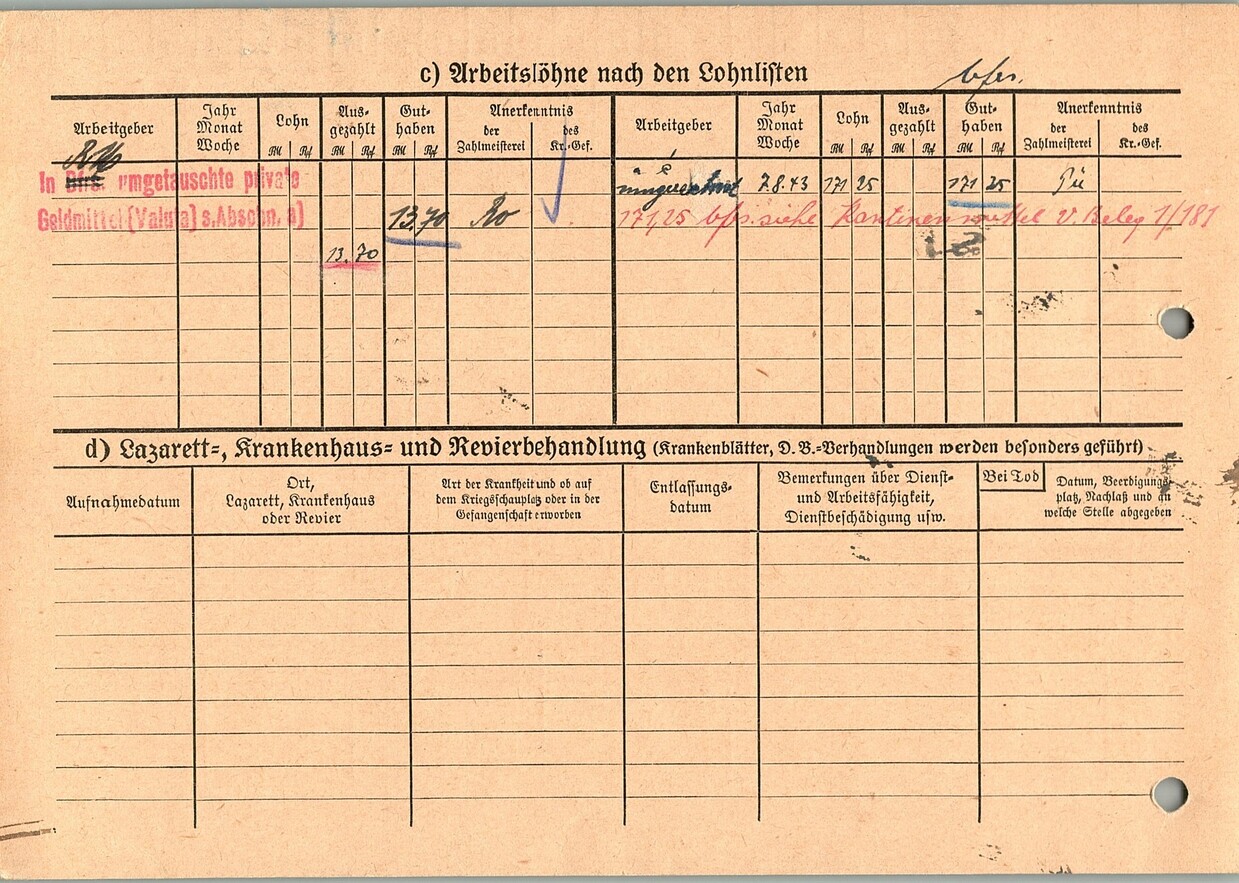 c) Arbeitslöhne nach den Lohnlisten
bfrs.
Arbeitgeber
Jahr
Monat
Woche
Lohn
RM Rpf
Aus-
gezahlt
RM Rpf
Gut-
haben
RM Rpf
Anerkenntnis
der
Zahlmeisterei
des
Kr.-Gef.
Arbeitgeber
Jahr
Monat
Woche
Lohn
RM Rpf
Aus-
gezahlt
RM Rpf
Gut-
haben
RM Rpf
Anerkenntnis
der
Zahlmeisterei
des
Kr.-Gef.
RM
In Bfrs. umgetauschte private
Geldmittel (Valuta) s.Abschn. a)
13.70 Ro
13.70
7.8.43 171 25 171 25
171,25 bfrs. siehe Kantinenmittel v. Beleg 1/181
d) Lazarett-, Krankenhaus- und Revierbehandlung (Krankenblätter, D. B.-Verhandlungen werden besonders geführt)
Aufnahmedatum
Ort,
Lazarett, Krankenhaus
oder Revier
Art der Krankheit und ob auf
dem Kriegsschauplatz oder in der
Gefangenschaft erworben
Entlassungs-
datum
Bemerkungen über Dienst-
und Arbeitsfähigkeit,
Dienstbeschädigung usw.
Bei Tod
Datum, Beerdigungs-
platz, Nachlaß und an
welche Stelle abgegeben